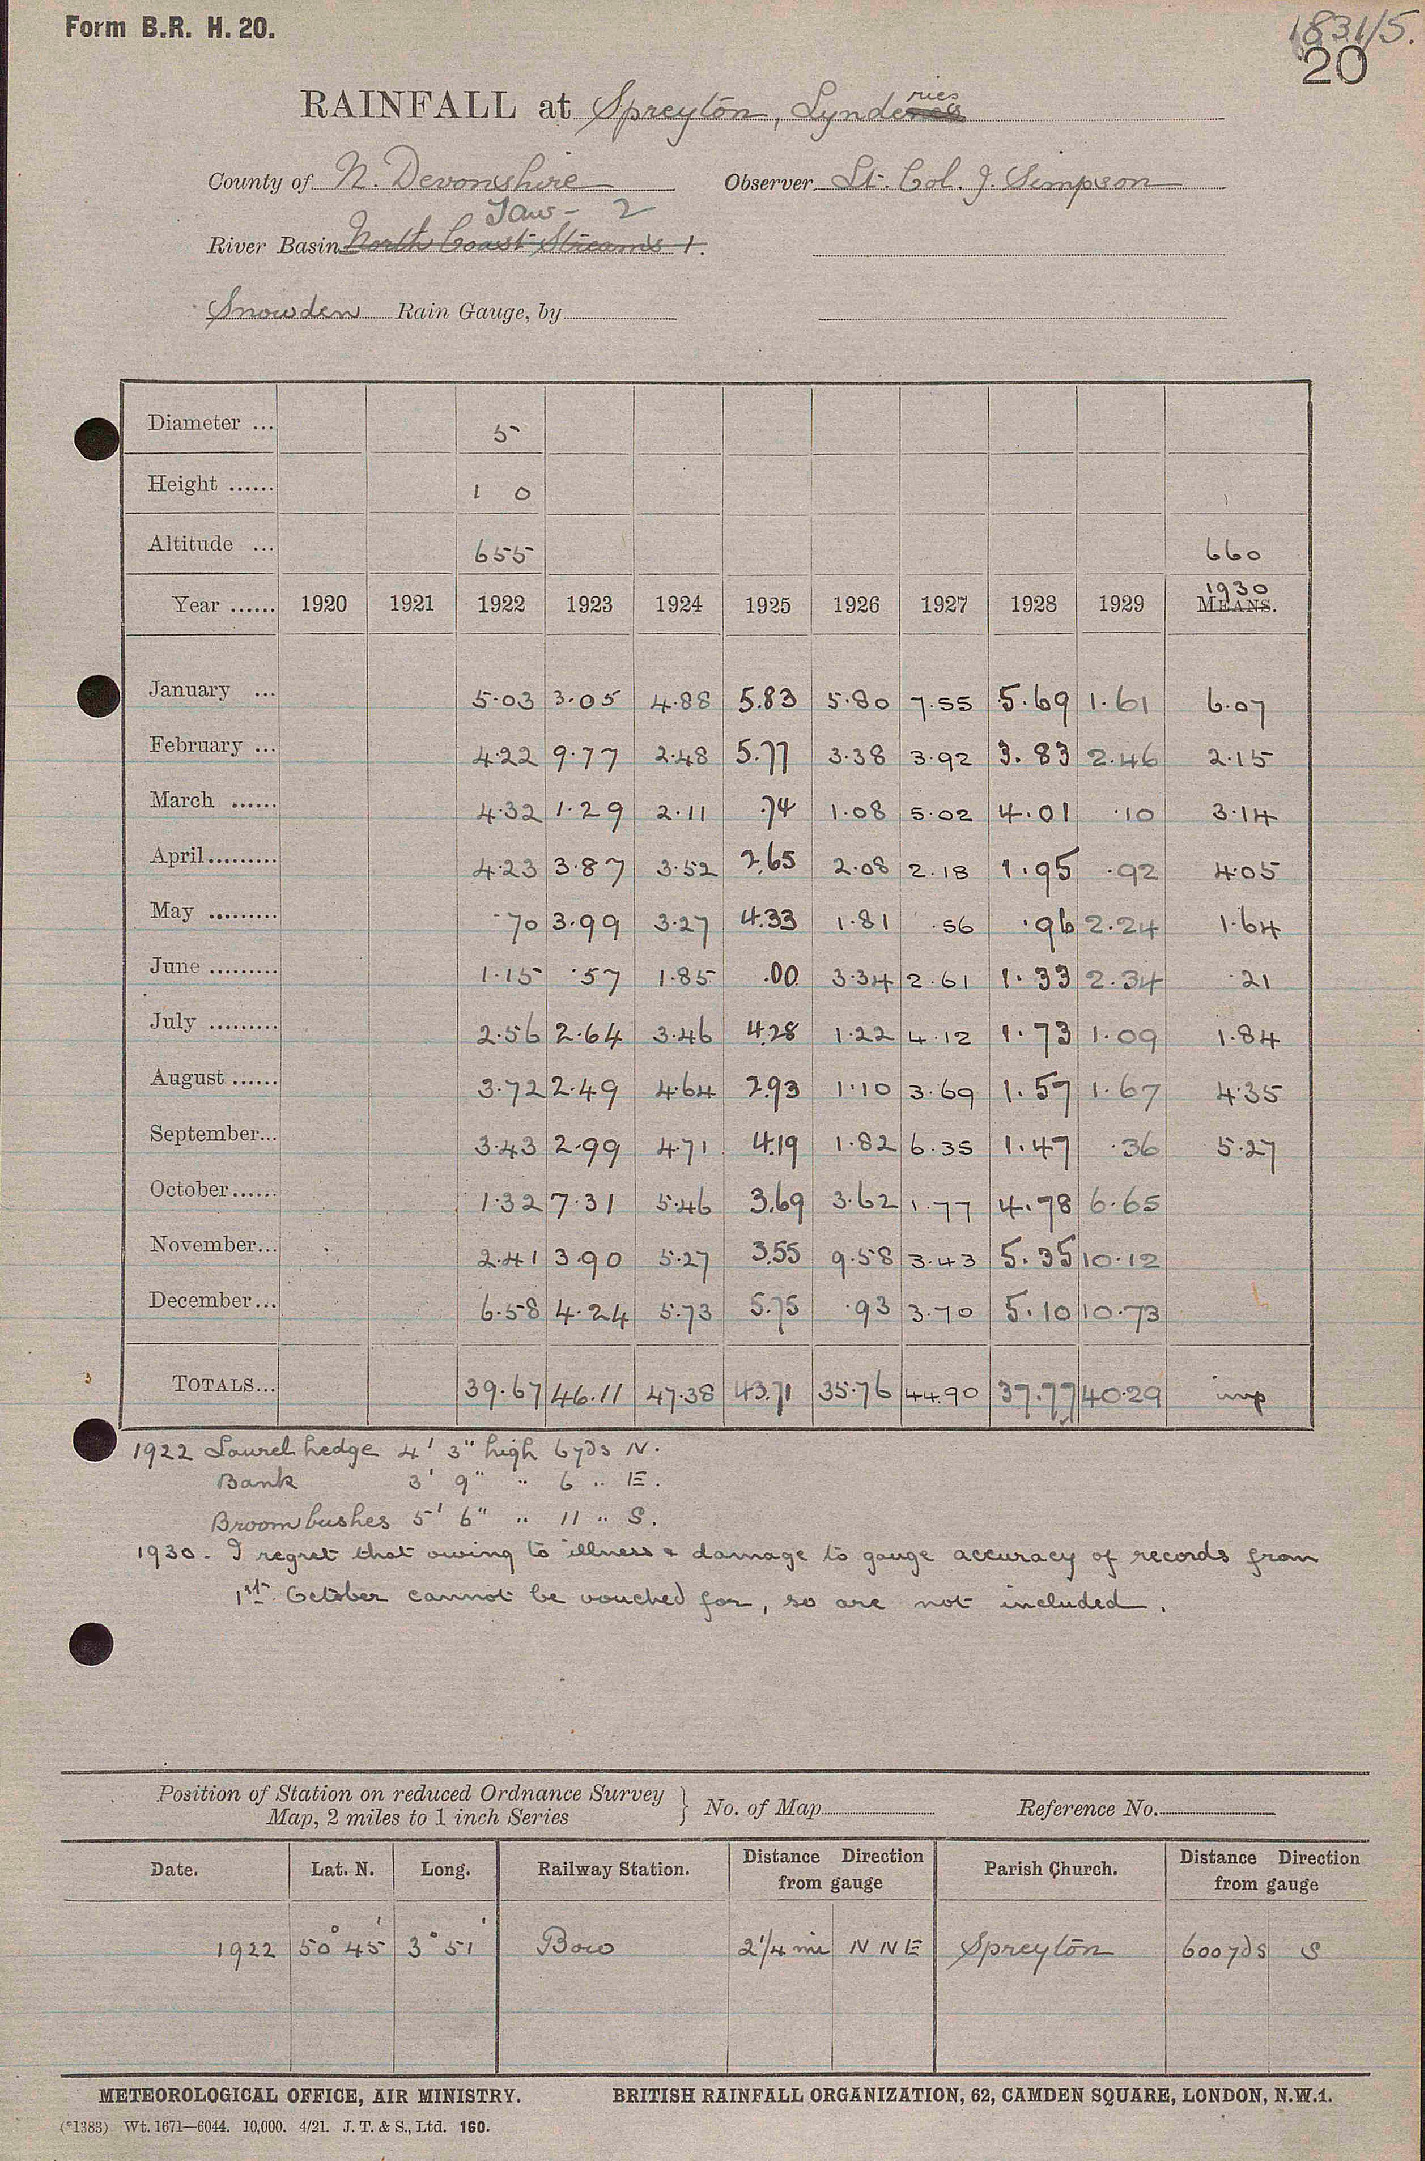 Form B.R. H. 20.
1831/5.
20
RAINFALL at Spreyton, Lynderies
County of N. Devonshire Observer Lt. Col. J. Simpson
Taw - 2
River Basin North Coast Streams 1.
Snowden Rain Gauge, by
Diameter ... 5
Height ...... 1 0
Altitude ... 655 660
Year ...... 1920 1921 1922 1923 1924 1925 1926 1927 1928 1929 1930 MEANS.
January ... 5.03 3.05 4.88 5.83 5.80 7.55 5.69 1.61 6.07
February ... 4.22 9.77 2.48 5.77 3.38 3.92 3.83 2.46 2.15
March ...... 4.32 1.29 2.11 .74 1.08 5.02 4.01 .10 3.14
April......... 4.23 3.87 3.52 2.65 2.08 2.18 1.95 .92 4.05
May ......... .70 3.99 3.27 4.33 1.81 .56 .96 2.24 1.64
June ......... 1.15 .57 1.85 .00 3.34 2.61 1.33 2.34 .21
July ......... 2.56 2.64 3.46 4.28 1.22 4.12 1.73 1.09 1.84
August ...... 3.72 2.49 4.64 2.93 1.10 3.69 1.57 1.67 4.35
September... 3.43 2.99 4.71 4.19 1.82 6.35 1.47 .36 5.27
October...... 1.32 7.31 5.46 3.69 3.62 1.77 4.78 6.65
November... 2.41 3.90 5.27 3.55 9.58 3.43 5.35 10.12
December... 6.58 4.24 5.73 5.75 .93 3.70 5.10 10.73
TOTALS... 39.67 46.11 47.38 43.71 35.76 44.90 37.77 40.29 imp
1922 Laurel hedge 4' 3" high 6 yds N.
Bank 3' 9" " 6 " E.
Broom bushes 5' 6" " 11 " S.
1930. I regret that owing to illness & damage to gauge accuracy of records from
1st October cannot be vouched for, so are not included.
Position of Station on reduced Ordnance Survey
Map, 2 miles to 1 inch Series } No. of Map Reference No.
Date. Lat. N. Long. Railway Station. Distance Direction from gauge Parish Church. Distance Direction from gauge
1922 50° 45' 3° 51' Bow 2 1/4 mi N N E Spreyton 600 yds S
METEOROLOGICAL OFFICE, AIR MINISTRY. BRITISH RAINFALL ORGANIZATION, 62, CAMDEN SQUARE, LONDON, N.W.1.
(*1383) Wt. 1671—6044. 10,000. 4/21. J. T. & S., Ltd. 160.